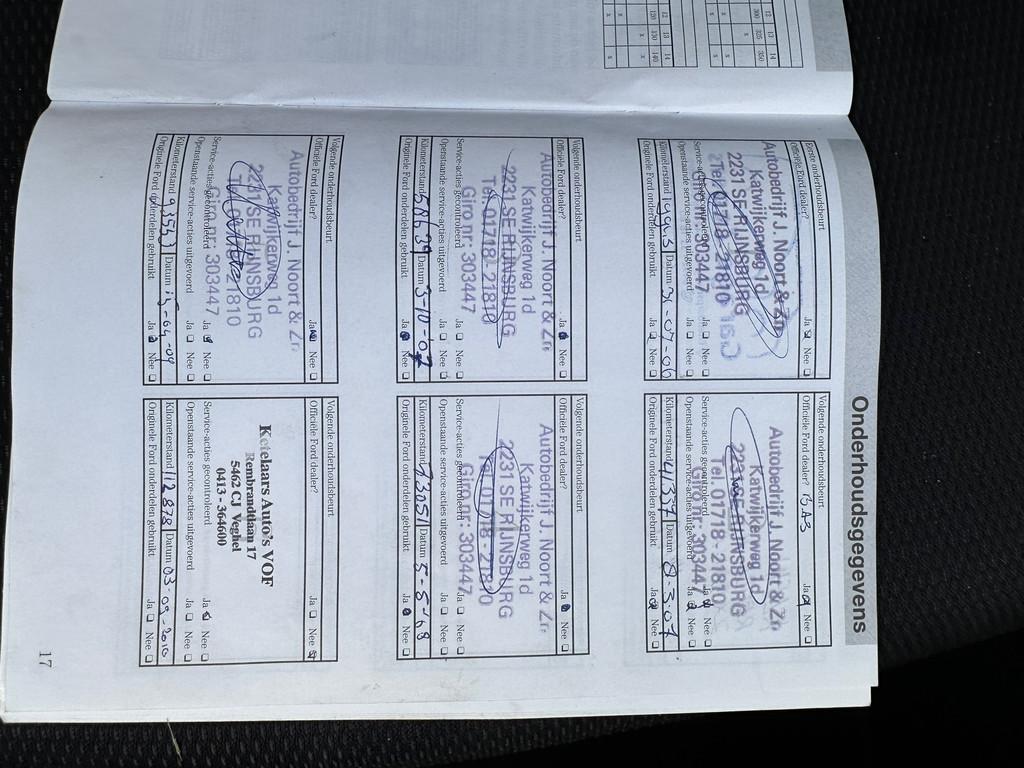 12 13 14
300 325 350
x
x x
x x
12 13 14
120 130 140
x
x
x x
Onderhoudsgegevens
Eerste onderhoudsbeurt
Officiële Ford dealer? Ja Nee
Autobedrijf J. Noort & Zn
Katwijkerweg 1d
2231 SE RIJNSBURG
Tel. 01718 - 21810
Giro nr: 303447
Service-acties gecontroleerd Ja Nee
Openstaande service-acties uitgevoerd Ja Nee
Kilometerstand Datum 31-07-06
Originele Ford onderdelen gebruikt Ja Nee
Volgende onderhoudsbeurt
Officiële Ford dealer? Ja Nee
Autobedrijf J. Noort & Zn
Katwijkerweg 1d
2231 SE RIJNSBURG
Tel. 01718 - 21810
Giro nr: 303447
Service-acties gecontroleerd Ja Nee
Openstaande service-acties uitgevoerd Ja Nee
Kilometerstand 41337 Datum 8-3-07
Originele Ford onderdelen gebruikt Ja Nee
Volgende onderhoudsbeurt
Officiële Ford dealer? Ja Nee
Autobedrijf J. Noort & Zn
Katwijkerweg 1d
2231 SE RIJNSBURG
Tel. 01718 - 21810
Giro nr: 303447
Service-acties gecontroleerd Ja Nee
Openstaande service-acties uitgevoerd Ja Nee
Kilometerstand 58639 Datum 3-10-07
Originele Ford onderdelen gebruikt Ja Nee
Volgende onderhoudsbeurt
Officiële Ford dealer? Ja Nee
Autobedrijf J. Noort & Zn
Katwijkerweg 1d
2231 SE RIJNSBURG
Tel. 01718 - 21810
Giro nr: 303447
Service-acties gecontroleerd Ja Nee
Openstaande service-acties uitgevoerd Ja Nee
Kilometerstand 73051 Datum
Originele Ford onderdelen gebruikt Ja Nee
Volgende onderhoudsbeurt
Officiële Ford dealer? Ja Nee
Autobedrijf J. Noort & Zn
Katwijkerweg 1d
2231 SE RIJNSBURG
Tel. 01718 - 21810
Giro nr: 303447
Service-acties gecontroleerd Ja Nee
Openstaande service-acties uitgevoerd Ja Nee
Kilometerstand 93563 Datum 15-04-09
Originele Ford onderdelen gebruikt Ja Nee
Volgende onderhoudsbeurt
Officiële Ford dealer? Ja Nee
Ketelaars Auto's VOF
Rembrandtlaan 17
5462 CJ Veghel
0413 - 364600
Service-acties gecontroleerd Ja Nee
Openstaande service-acties uitgevoerd Ja Nee
Kilometerstand 112878 Datum 03-09-2010
Originele Ford onderdelen gebruikt Ja Nee
17